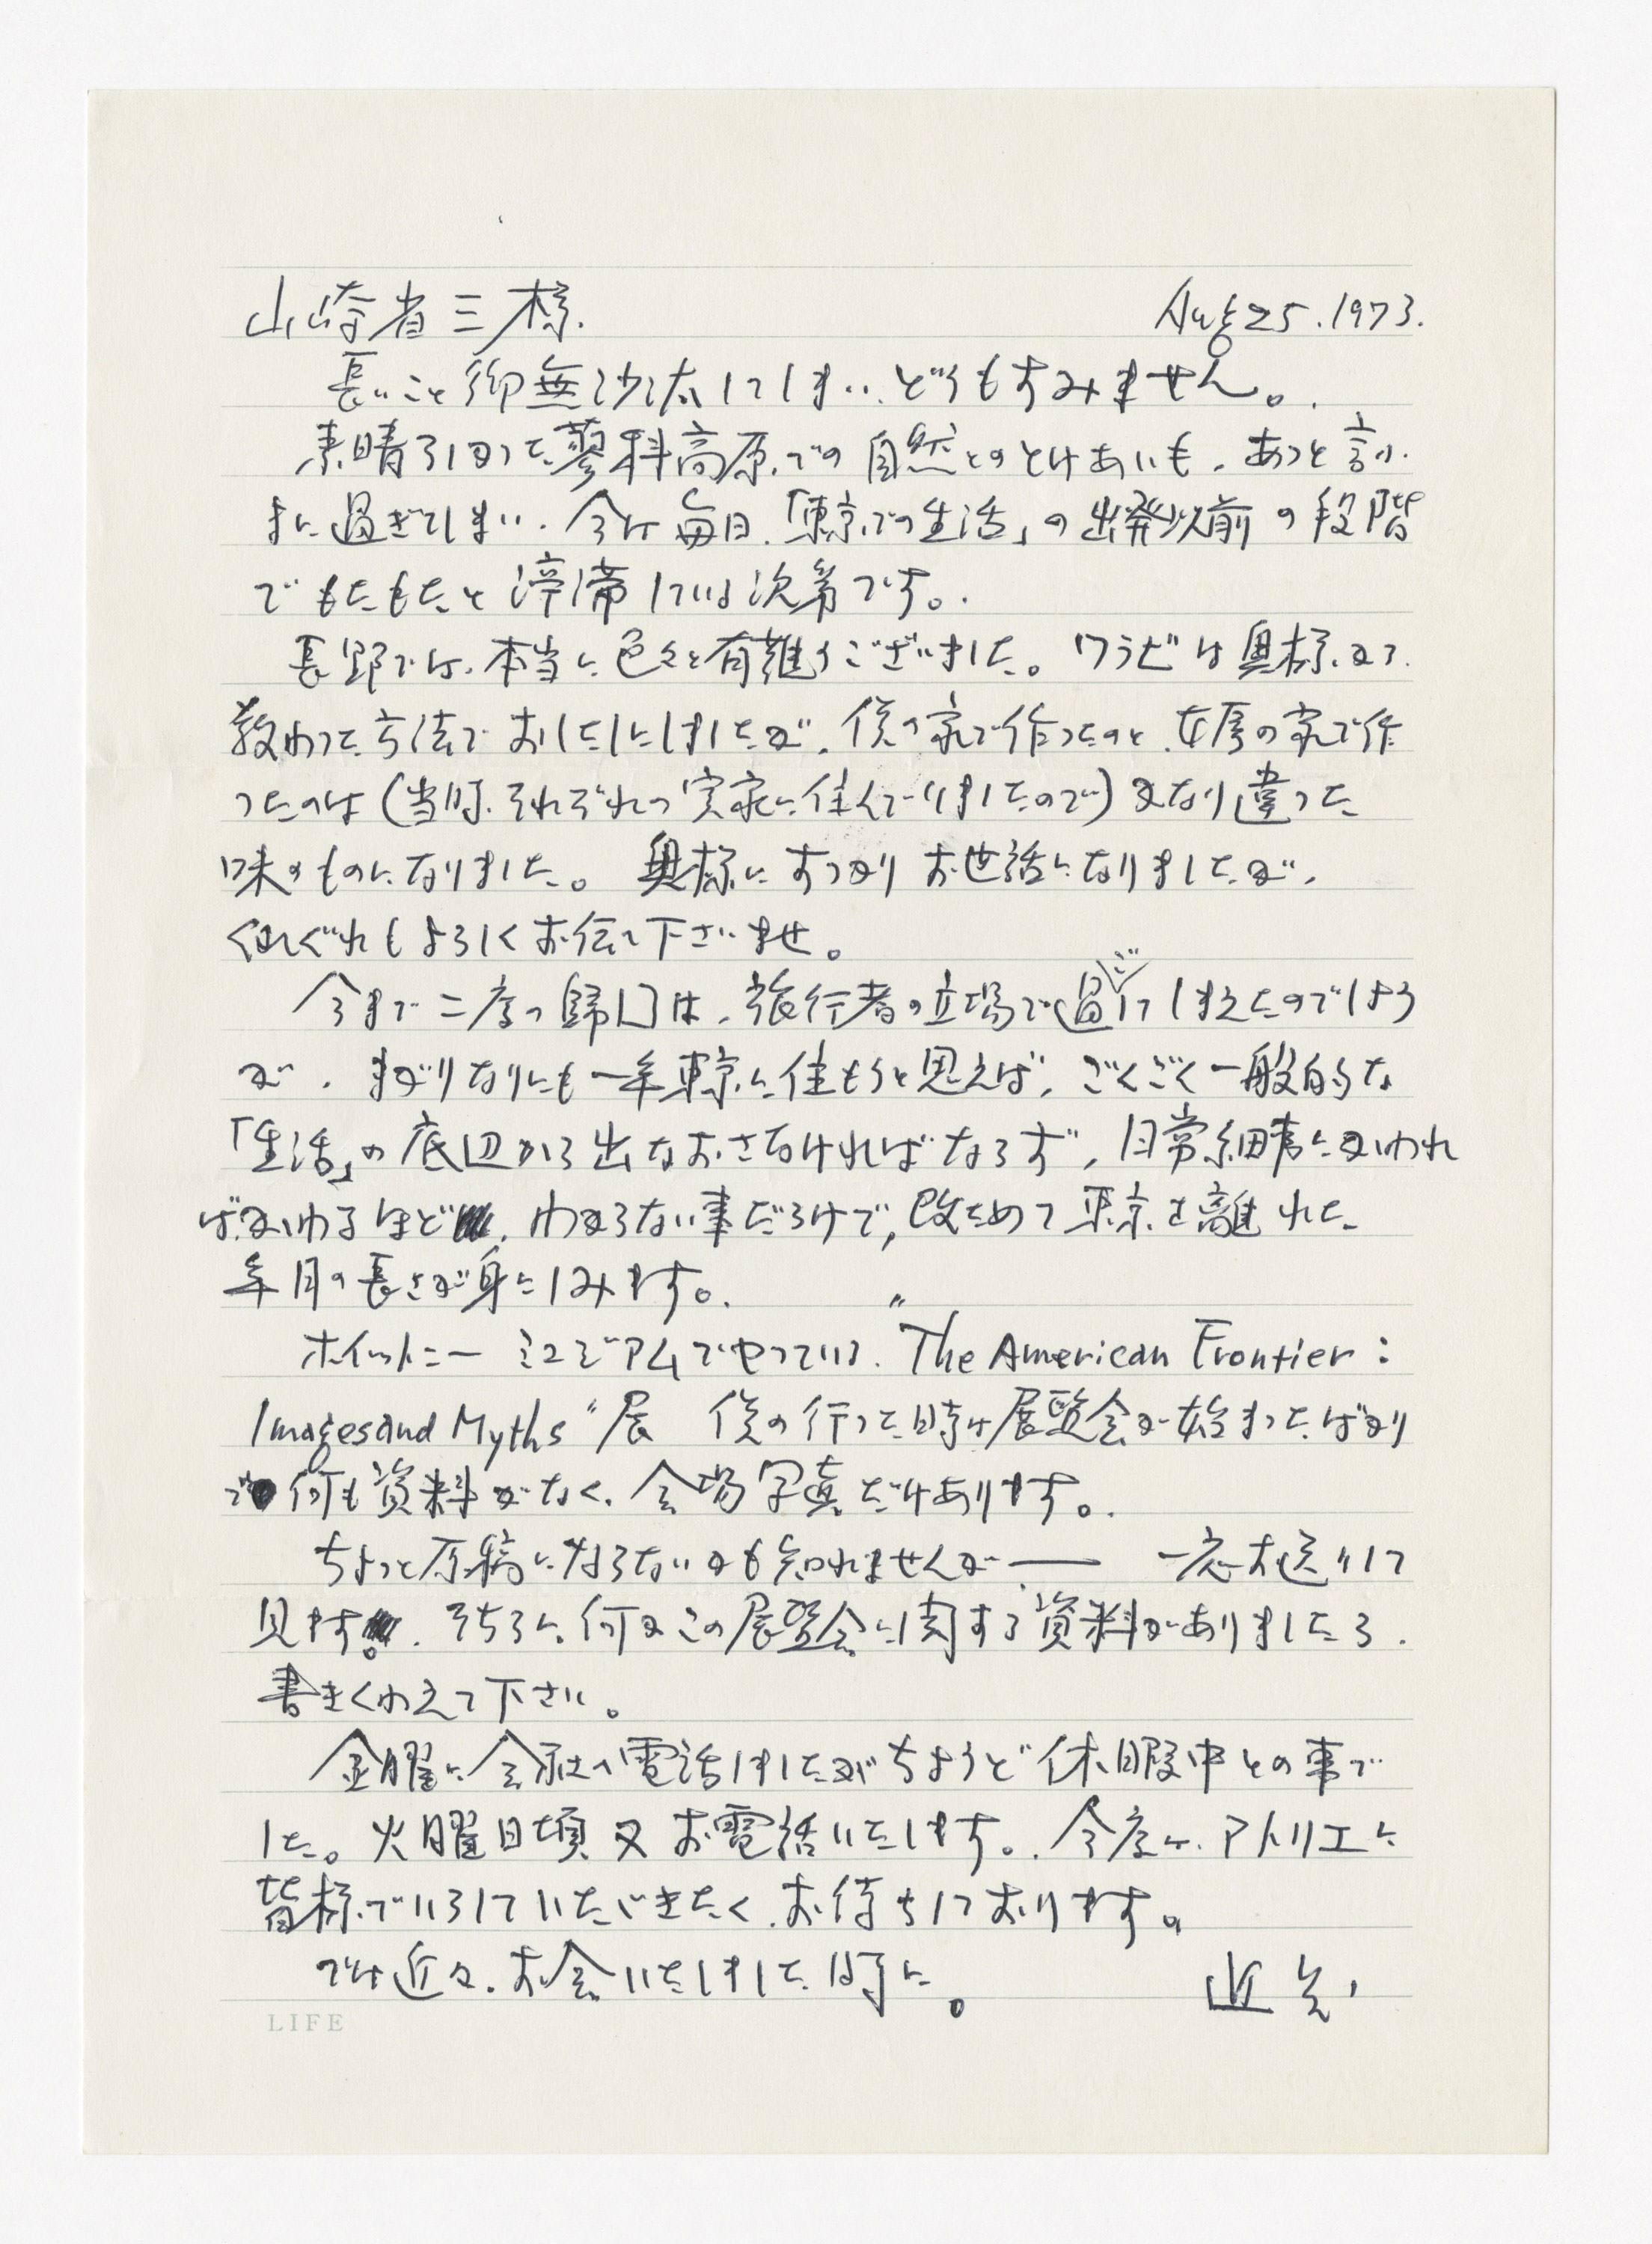 山崎省三様.
Aug 25. 1973.
長いこと御無沙汰してしまい、どうもすみません。
素晴らしかった蓼科高原での自然とのとけあいも、あっと言う
まに過ぎてしまい、今は毎日、「東京での生活」の出発以前の段階
でもたもたと渋滞している次第です。
長野では、本当に色々と有難うございました。ワラビは奥様から
教わった方法でおしたしにしましたが、僕の家で作ったのと、女房の家で作
ったのは(当時、それぞれの実家に住んでいましたので)かなり違った
味のものになりました。奥様にすっかりお世話になりましたが、
くれぐれもよろしくお伝え下さいませ。
今まで二度の帰国は、旅行者の立場で過ごしてしまえたのでしょう
が、まがりなりにも一年東京に住もうと思えば、ごくごく一般的な
「生活」の底辺から出なおさなければならず、日常細事にかかわれ
ばかかわるほど、わからない事だらけで、改ためて東京を離れた
年月の長さが身にしみます。
ホイットニーミュジアムでやっている、"The American Frontier:
Images and Myths"展 僕の行った時は展覧会が始まったばかり
で何も資料がなく、会場写真だけあります。
ちょっと原稿にならないかも知れませんが—— 一応お送りして
見ます。そちらに何かこの展覧会に関する資料がありましたら、
書きくわえて下さい。
金曜に会社へ電話しましたがちょうど休暇中との事で
した。火曜日頃又お電話いたします。今度は、アトリエに
皆様でいらしていただきたく、お待ちしております。
では近々、お会いいたしました時に。
LIFE